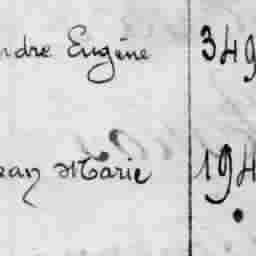 ndre Eugène 349
ean Marie 194